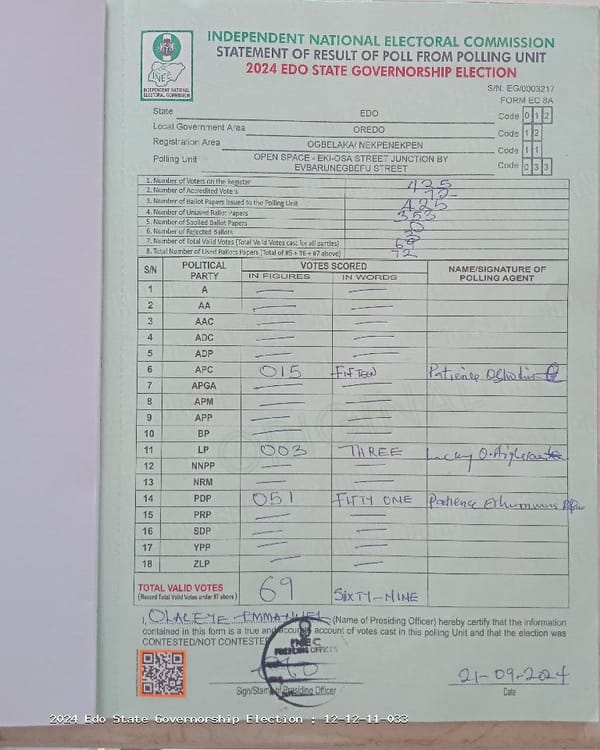 INDEPENDENT NATIONAL ELECTORAL COMMISSION
STATEMENT OF RESULT OF POLL FROM POLLING UNIT
2024 EDO STATE GOVERNORSHIP ELECTION
INDEPENDENT NATIONAL
ELECTORAL COMMISSION
S/N: EG/0003217
FORM EC 8A
State EDO Code 0 1 2
Local Government Area OREDO Code 1 2
Registration Area OGBELAKA/ NEKPENEKPEN Code 1 1
Polling Unit OPEN SPACE - EKI-OSA STREET JUNCTION BY EVBARUNEGBEFU STREET Code 0 3 3
1. Number of Voters on the Register 425
2. Number of Accredited Voters 72
3. Number of Ballot Papers Issued to the Polling Unit 425
4. Number of Unused Ballot Papers 353
5. Number of Spoiled Ballot Papers 0
6. Number of Rejected Ballots
7. Number of Total Valid Votes (Total Valid Votes cast for all parties) 69
8. Total Number of Used Ballots Papers (Total of #5 + #6 + #7 above) 72
S/N POLITICAL PARTY VOTES SCORED NAME/SIGNATURE OF POLLING AGENT
IN FIGURES IN WORDS
1 A
2 AA
3 AAC
4 ADC
5 ADP
6 APC 015 FIFTEEN Patience
7 APGA
8 APM
9 APP
10 BP
11 LP 003 THREE Lucky O.
12 NNPP
13 NRM
14 PDP 051 FIFTY ONE Patience
15 PRP
16 SDP
17 YPP
18 ZLP
TOTAL VALID VOTES 69 SIXTY-NINE
(Record Total Valid Votes under #7 above)
I, OLALEYE EMMANUEL (Name of Presiding Officer) hereby certify that the information
contained in this form is a true and accurate account of votes cast in this polling Unit and that the election was
CONTESTED/NOT CONTESTED
INEC
PRESIDING OFFICER
21-09-2024
Sign/Stamp of Presiding Officer Date
2024 Edo State Governorship Election : 12-12-11-033